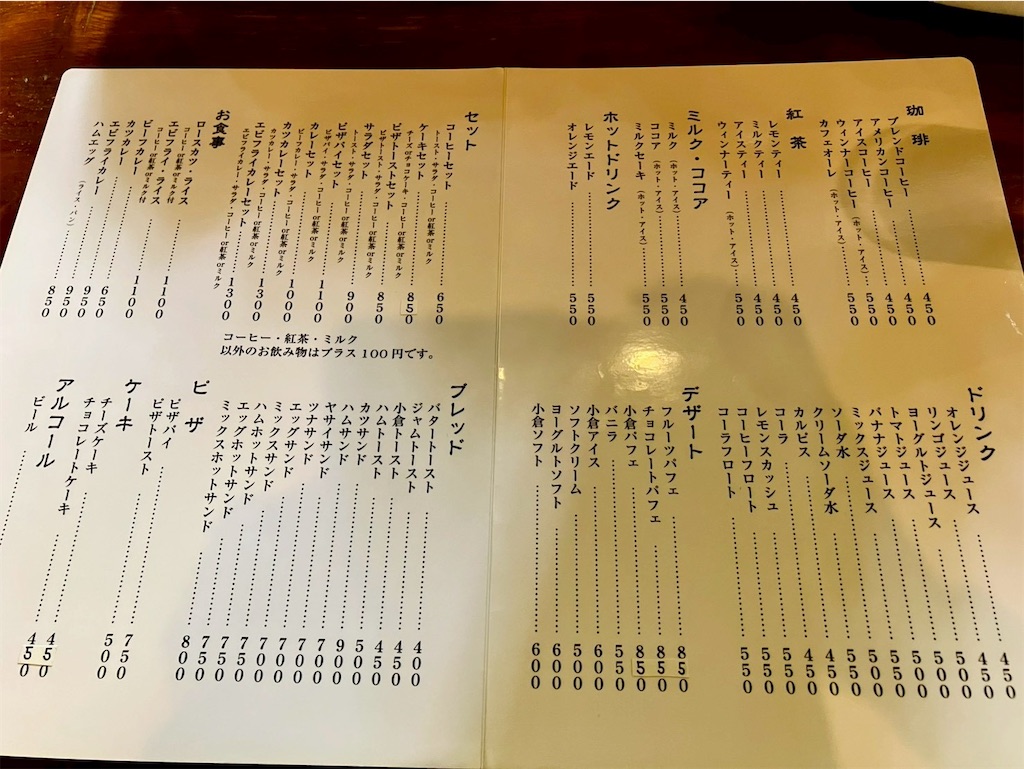 珈琲
ブレンドコーヒー 450
アメリカンコーヒー 450
アイスコーヒー 450
ウィンナーコーヒー（ホット・アイス） 550
カフェオーレ（ホット・アイス） 550
紅茶
レモンティー 450
ミルクティー 450
アイスティー 450
ウィンナーティー（ホット・アイス） 550
ミルク・ココア
ミルク（ホット・アイス） 450
ココア（ホット・アイス） 550
ミルクセーキ（ホット・アイス） 550
ホットドリンク
レモンエード 550
オレンジエード 550
セット
コーヒーセット 650
トースト・サラダ・コーヒー or紅茶 orミルク
ケーキセット 850
チーズorチョコケーキ・コーヒー or紅茶 orミルク
ピザトーストセット 850
ピザトースト・サラダ・コーヒー or紅茶 orミルク
サラダセット 900
トースト・サラダ・コーヒー or紅茶 orミルク
ピザパイセット 1100
ピザパイ・サラダ・コーヒー or紅茶 orミルク
カレーセット 1000
ビーフカレー・サラダ・コーヒー or紅茶 orミルク
カツカレーセット 1300
カツカレー・サラダ・コーヒー or紅茶 orミルク
エビフライカレーセット 1300
エビフライカレー・サラダ・コーヒー or紅茶 orミルク
コーヒー・紅茶・ミルク
以外のお飲み物はプラス100円です。
お食事
ロースカツ・ライス 1100
コーヒーor紅茶orミルク付
エビフライ・ライス 1100
コーヒーor紅茶orミルク付
ビーフカレー 650
カツカレー 950
エビフライカレー 950
ハムエッグ（ライス・パン） 850
ドリンク
オレンジジュース 450
リンゴジュース 450
ヨーグルトジュース 500
トマトジュース 500
バナナジュース 500
ミックスジュース 500
ソーダ水
クリームソーダ水
カルピス
コーラ
レモンスカッシュ
コーヒーフロート 550
コーラフロート 550
デザート
フルーツパフェ 850
チョコレートパフェ 850
小倉パフェ 850
バニラ 550
小倉アイス 600
ソフトクリーム
ヨーグルトソフト 600
小倉ソフト 600
ブレッド
バタートースト 400
ジャムトースト 400
小倉トースト 450
ハムトースト 500
カツサンド 900
ハムサンド 700
ヤサイサンド 700
ツナサンド 700
エッグサンド 700
ミックスサンド 750
ハムホットサンド 750
エッグホットサンド 750
ミックスホットサンド 800
ピザ
ピザパイ 750
ピザトースト 500
ケーキ
チーズケーキ 450
チョコレートケーキ 450
アルコール
ビール